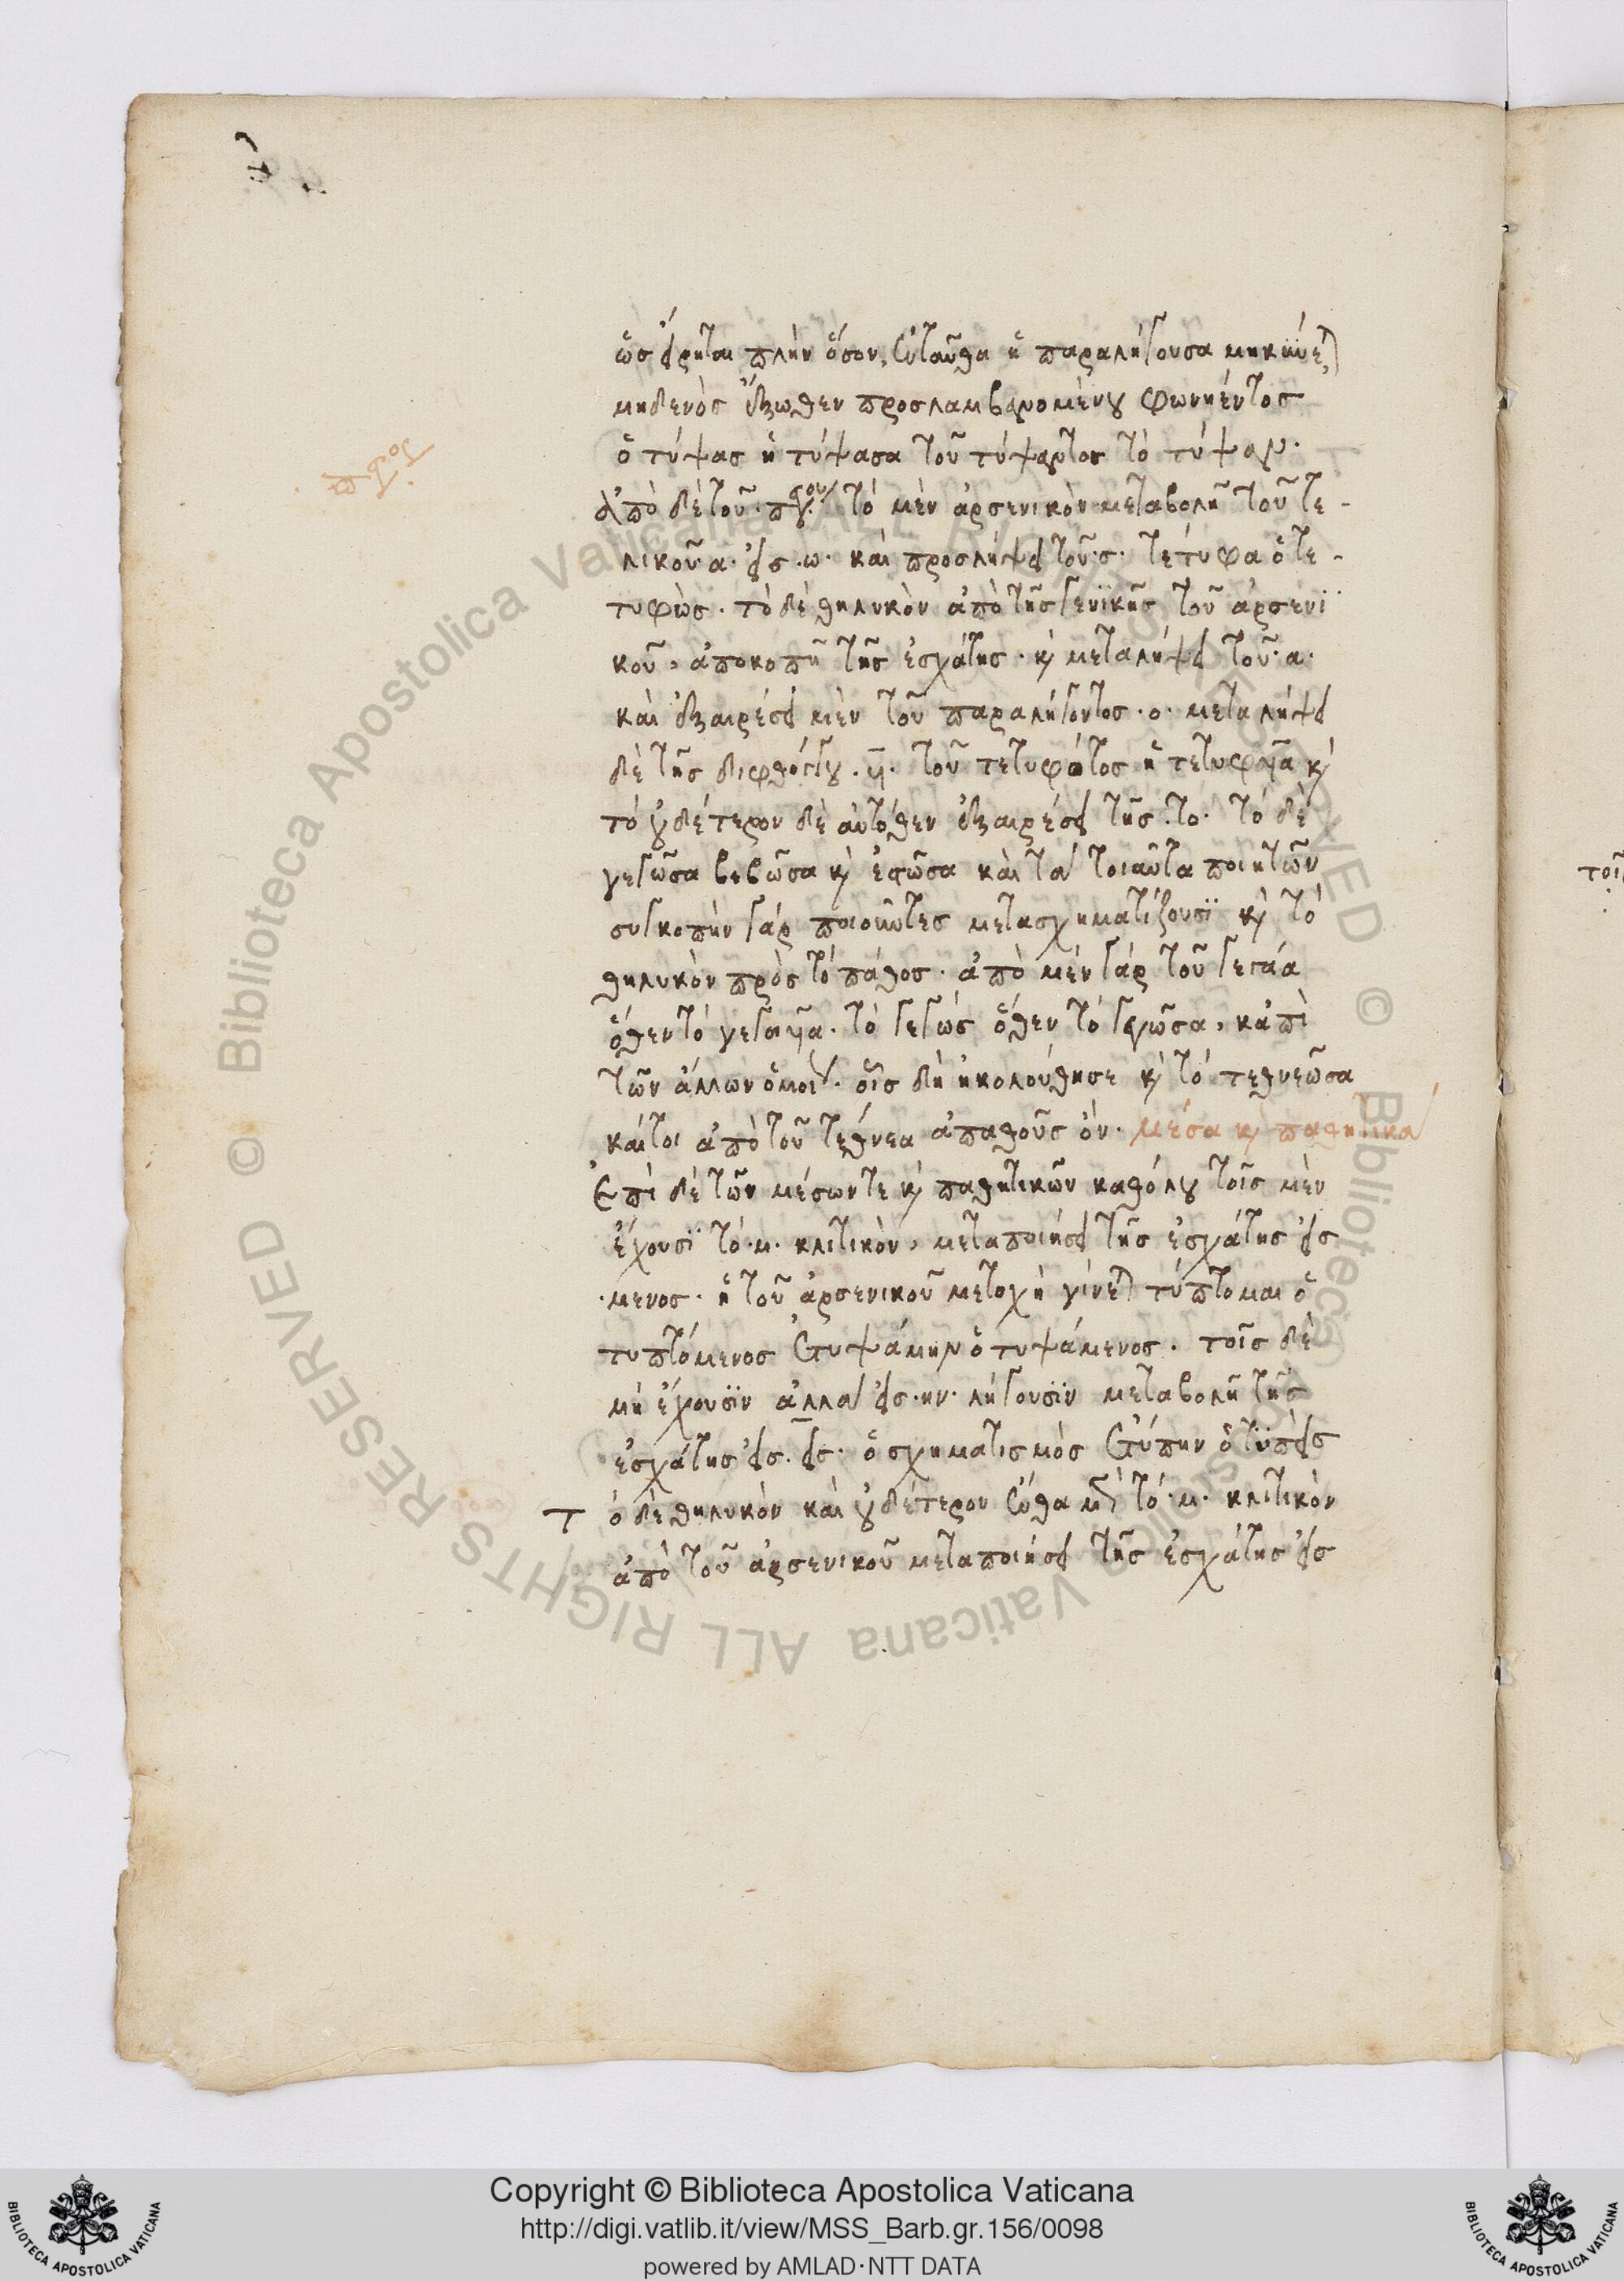 ὡς εἴρηται πλὴν ὅσον, ἐνταῦθα ἡ παραλήγουσα μηκύνεται
μηδενὸς ἔξωθεν προσλαμβανομένου φωνήεντος
ὁ τύψας ἡ τύψασα τοῦ τύψαντος τὸ τύψαν.
Ἀπὸ δὲ τοῦ τὸ μὲν ἀρσενικὸν μεταβολῇ τοῦ τε-
λικοῦ α. εἰς .ω. καὶ προσλήψει τοῦ.σ. τέτυφα ὁ τε-
τυφὼς. τὸ δὲ θηλυκὸν ἀπὸ τῆς γενϊκῆς τοῦ ἀρσενϊ
κοῦ, ἀποκοπῇ τῆς ἐσχάτης. κὶ μεταλήψει τοῦ.α.
καὶ ἐξαιρέσει μὲν τοῦ παραλήγοντος .ο. μεταλήψει
δὲ τῆς διφθόγγου .υι. τοῦ τετυφότος ἡ τετυφυῖα κὶ
τὸ οὐδέτερον δὲ αὐτόθεν ἐξαιρέσει τῆς .το. τὸ δὲ
γεγῶσα βεβῶσα κὶ ἑστῶσα καὶ τὰ τοιαῦτα ποιητῶν
συγκοπὴν γάρ ποιοῦντες μετασχηματίζουσϊ κὶ τὸ
θηλυκὸν πρὸς τὸ πάθος. ἀπὸ μέν γάρ τοῦ γεγάα
ὅθεν τὸ γεγαυῖα. τὸ γεγώς ὅθεν τὸ γεγῶσα, κἀπὶ
τῶν ἄλλων ὁμοίως. οἷς δὴ ἠκολούθησε κὶ τὸ τεθνεῶσα
καίτοι ἀπὸ τοῦ τέθνεα ἀπαθοῦς ὄν. μέσα κὶ παθητικὰ
Ἐπὶ δὲ τῶν μέσων τε κὶ παθητικῶν καθόλου τοῖς μὲν
ἔχουσϊ τὸ.μ. κλιτικὸν, μεταποιήσει τῆς ἐσχάτης εἰς
.μενος. ἡ τοῦ ἀρσενικοῦ μετοχὴ γίνεται τύπτομαι ὁ
τυπτόμενος ἐτυψάμην ὁ τυψάμενος. τοῖς δὲ
μὴ ἔχουσϊν ἀλλὰ εἰς .ην. λήγουσϊν μεταβολῇ τῆς
ἐσχάτης εἰς. εις. ὁ σχηματισμὸς ἐτύπην ὁ τϋπεὶς
Τ ὸ δὲ θηλυκὸν καὶ οὐδέτερον ἔνθα μὲν τὸ.μ. κλιτικὸν
ἀπὸ τοῦ ἀρσενικοῦ μεταποιήσει τῆς ἐσχάτης εἰς
Copyright © Biblioteca Apostolica Vaticana
http://digi.vatlib.it/view/MSS_Barb.gr.156/0098
powered by AMLAD·NTT DATA